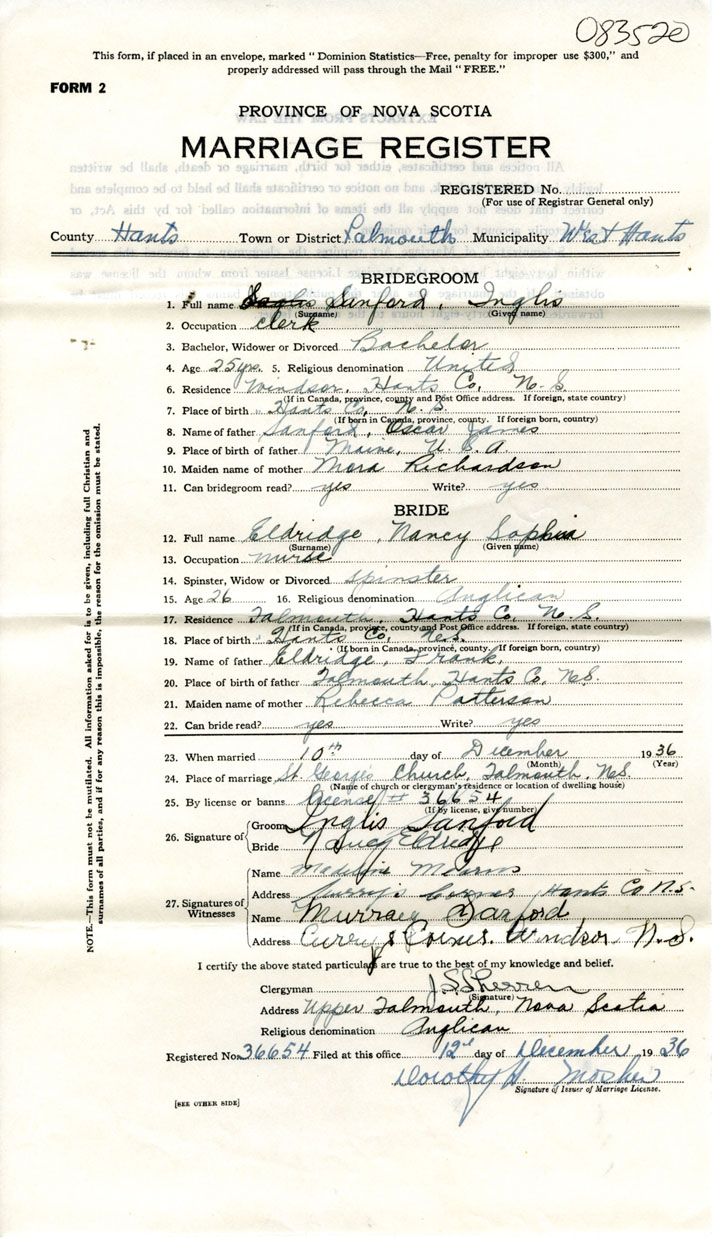 083520
This form, if placed in an envelope, marked "Dominion Statistics—Free, penalty for improper use $300," and
properly addressed will pass through the Mail "FREE."
FORM 2
PROVINCE OF NOVA SCOTIA
MARRIAGE REGISTER
REGISTERED No.
(For use of Registrar General only)
County Hants Town or District Falmouth Municipality West Hants
BRIDEGROOM
1. Full name Sanford, Inglis
(Surname) (Given name)
2. Occupation clerk
3. Bachelor, Widower or Divorced Bachelor
4. Age 25 yrs. 5. Religious denomination United
6. Residence Windsor, Hants Co, N. S.
(If in Canada, province, county and Post Office address. If foreign, state country)
7. Place of birth Hants Co, N. S.
(If born in Canada, province, county. If foreign born, country)
8. Name of father Sanford, Oscar James
9. Place of birth of father Maine, U. S. A.
10. Maiden name of mother Mora Richardson
11. Can bridegroom read? yes Write? yes
BRIDE
12. Full name Eldridge, Nancy Sophia
(Surname) (Given name)
13. Occupation nurse
14. Spinster, Widow or Divorced Spinster
15. Age 26 16. Religious denomination Anglican
17. Residence Falmouth, Hants Co. N. S.
(If in Canada, province, county and Post Office address. If foreign, state country)
18. Place of birth Hants Co, N.S.
(If born in Canada, province, county. If foreign born, country)
19. Name of father Eldridge, Frank,
20. Place of birth of father Falmouth, Hants Co, N.S.
21. Maiden name of mother Rebecca Patterson
22. Can bride read? yes Write? yes
23. When married 10th day of December 1936
(Month) (Year)
24. Place of marriage St. George's Church, Falmouth, N.S.
(Name of church or clergyman's residence or location of dwelling house)
25. By license or banns License # 36654
(If by license, give number)
26. Signature of Groom Inglis Sanford
Bride Nancy Eldridge
27. Signatures of Witnesses
Name Madeline
Address Curry's Corner Hants Co N.S.
Name Murray Sanford
Address Curry's Corner. Windsor N.S.
I certify the above stated particulars are true to the best of my knowledge and belief.
Clergyman
(Signature)
Address Upper Falmouth, Nova Scotia
Religious denomination Anglican
Registered No. 36654 Filed at this office 12th day of December 1936
Dorothy H. Mosher
Signature of Issuer of Marriage License.
[SEE OTHER SIDE]
NOTE.—This form must not be mutilated. All information asked for is to be given, including full Christian and
surnames of all parties, and if for any reason this is impossible, the reason for the omission must be stated.